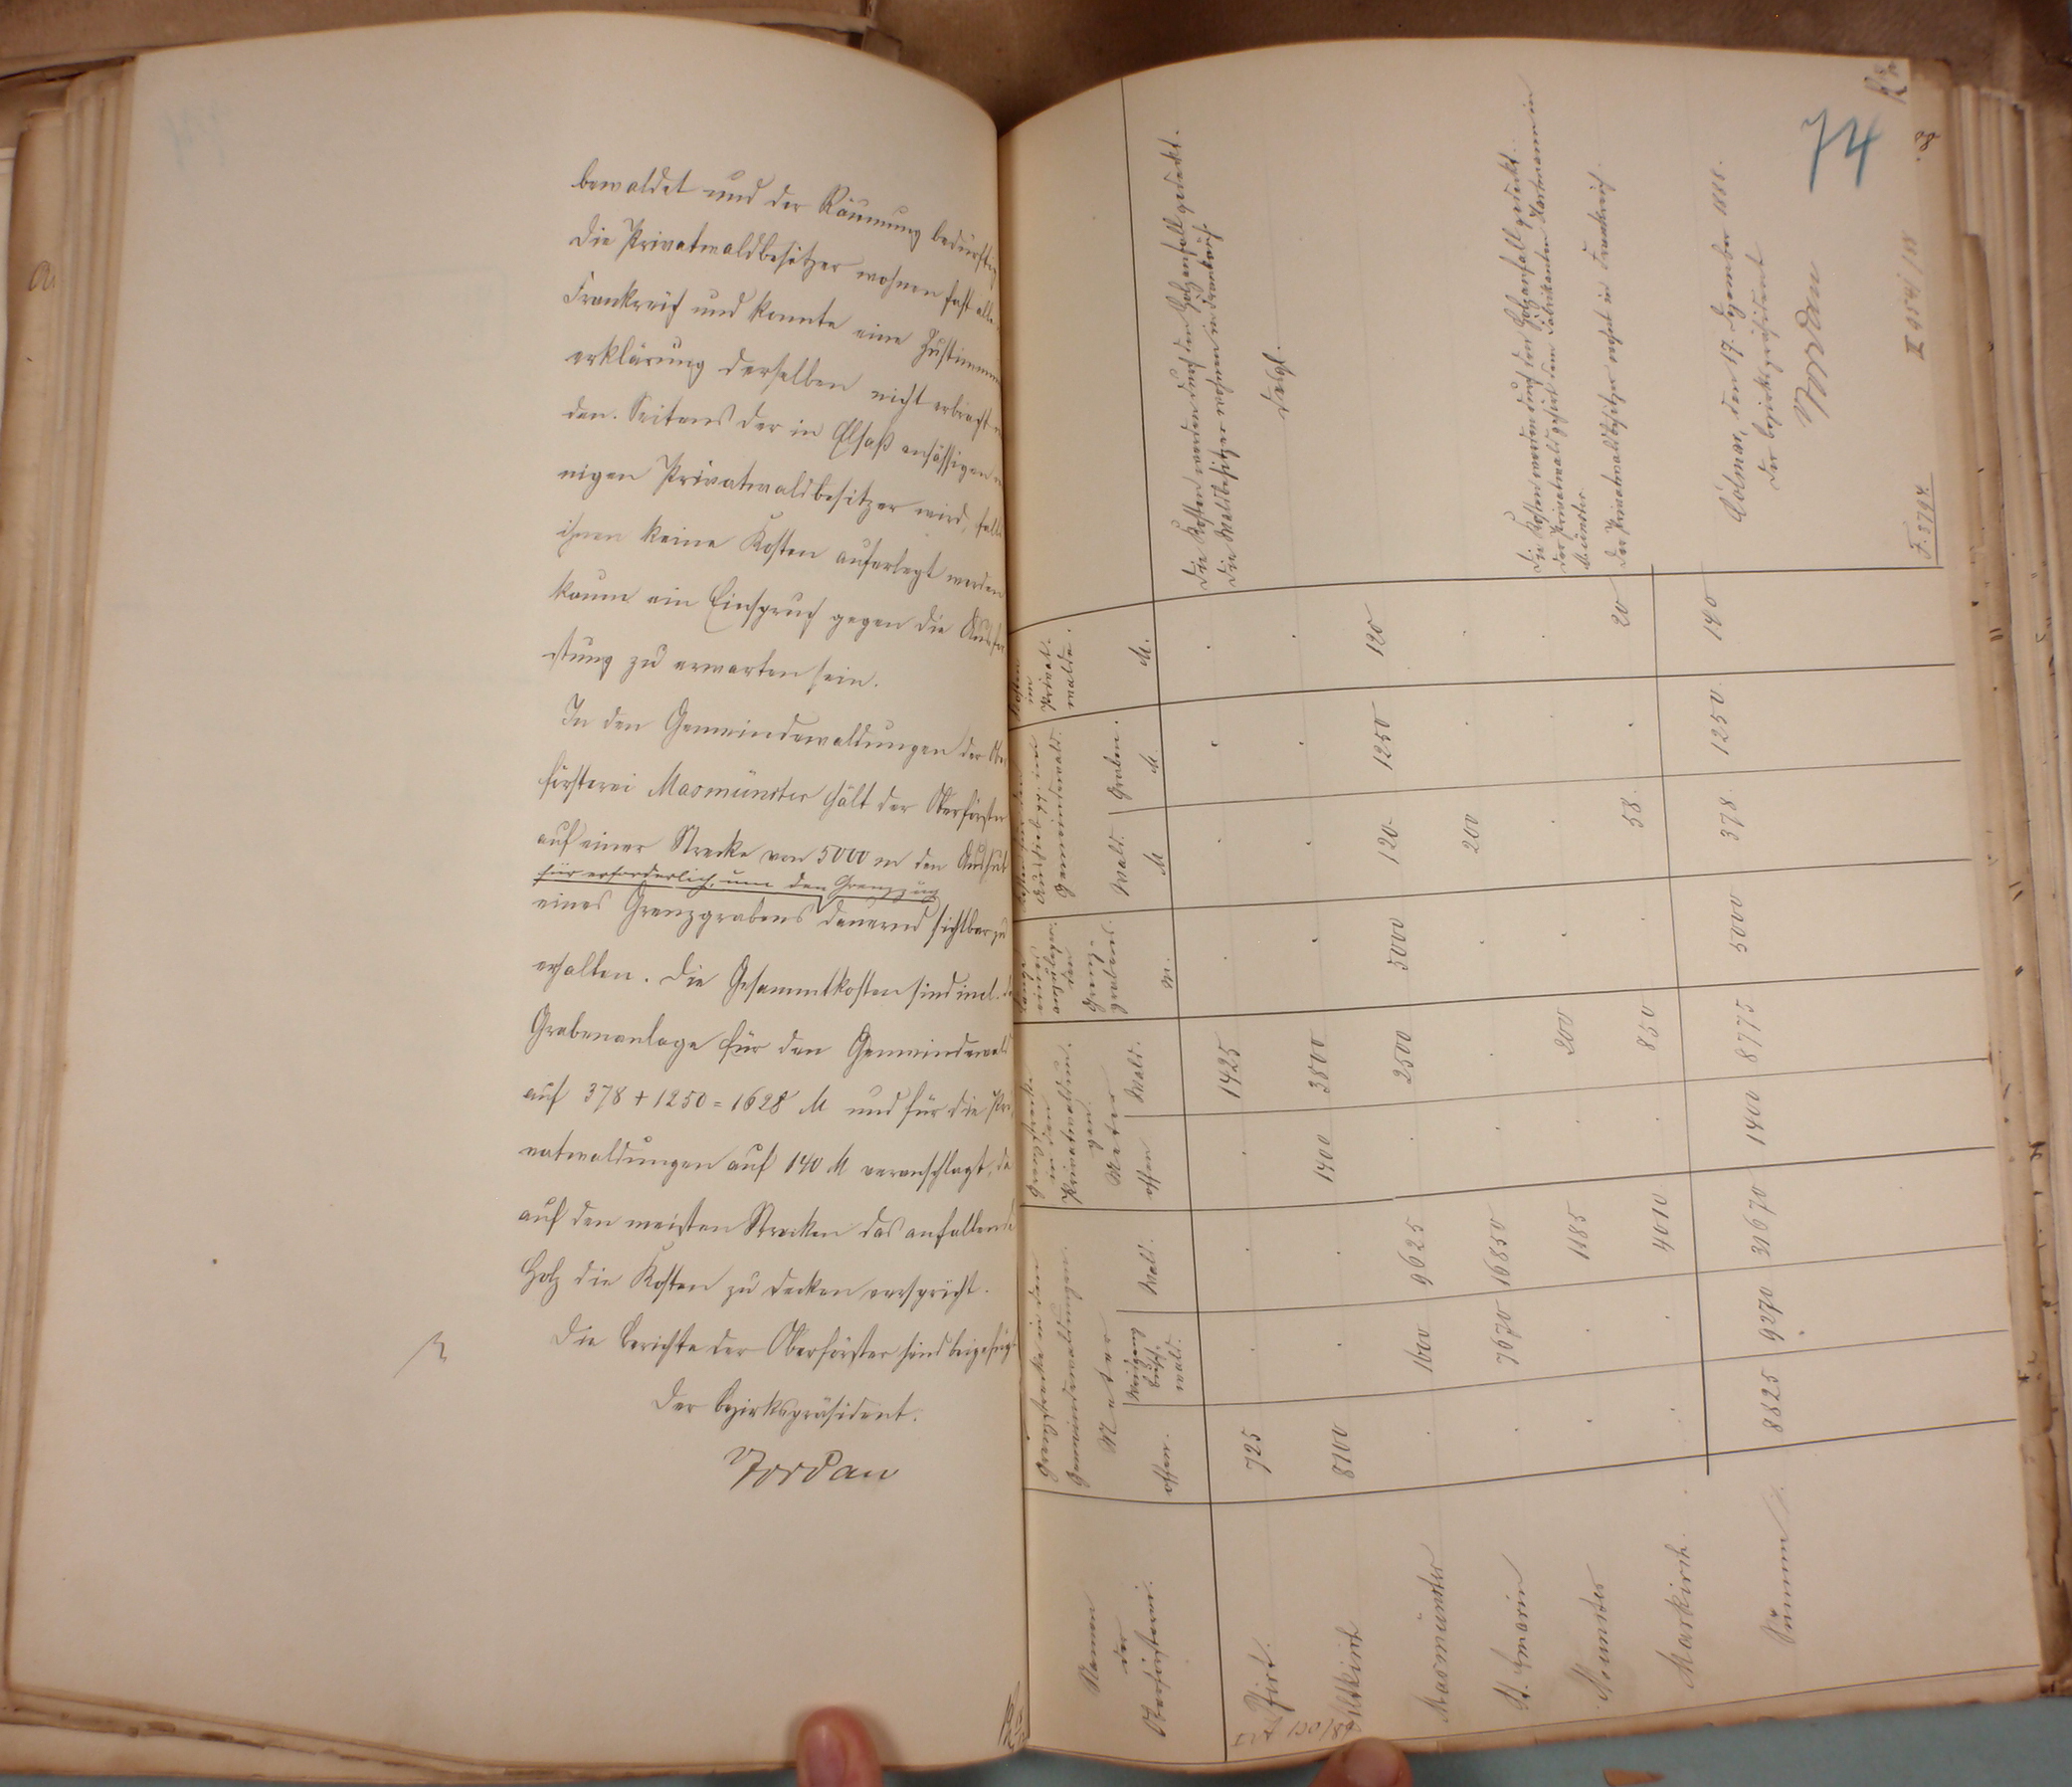 bewaldet und der Räumung bedürftig
Die Privatwaldbesitzer wohnen fast alle
Frankreich und konnte eine Zustimmu
erklärung derselben nicht erbracht
den. Seitens der in Elsaß ansässigen
nigen Privatwaldbesitzer wird, falls
ihnen keine Kosten auferlegt werden
kaum ein Einspruch gegen die Aush
stung zu erwarten sein.
In den Gemeindewaldungen der Ober
försterei Masmünster hält der Oberförster
auf einer Strecke von 5000 m den Aushub
für erforderlich, um den Grenzzug
eines Grenzgrabens dauernd sichtbar zu
erhalten. Die Gesammtkosten sind incl. d
Grabenanlage für den Gemeindewald
auf 378 + 1250 = 1628 M und für die Pri
vatwaldungen auf 140 M veranschlagt, da
auf den meisten Strecken das anfallende
Holz die Kosten zu decken verspricht.
Die Berichte der Oberförster sind beigefügt
Der Bezirkspräsident.
Jordan
74
Namen der Oberförsterei.
Grenzstrecke in den Gemeindewaldungen. Meter
offen. Wald.
Grenzstrecke in den Privatwaldungen. Meter
offen Wald.
Länge eines anzulegenden Grenzgrabens. M.
Gemeindewald. Wald. M Graben. M
Kosten im Privatwalde. M.
Pfirt. 725 . . . 1425 . . . .
Die Kosten werden durch den Holzanfall gedeckt.
Die Waldbesitzer wohnen in Frankreich
Altkirch 8100 . . 1400 3800 . . . .
desgl.
Masmünster . 1600 9625 . 2500 5000 120 1250 120
St. Amarin . 7670 16850 . . . 200 . .
Münster . . 1185 . 200 . . . .
Die Kosten werden durch den Holzanfall gedeckt.
der Privatwald gehört dem Fabrikanten Hartmann in
Münster.
Markirch . . 4010 . 850 . 58 . 20
Der Privatwaldbesitzer wohnt in Frankreich.
Summe 8825 9270 31670 1400 8775 5000 378. 1250. 140
Colmar, den 17. Dezember 1888.
Der Bezirkspräsident
Jordan
F. 3794.